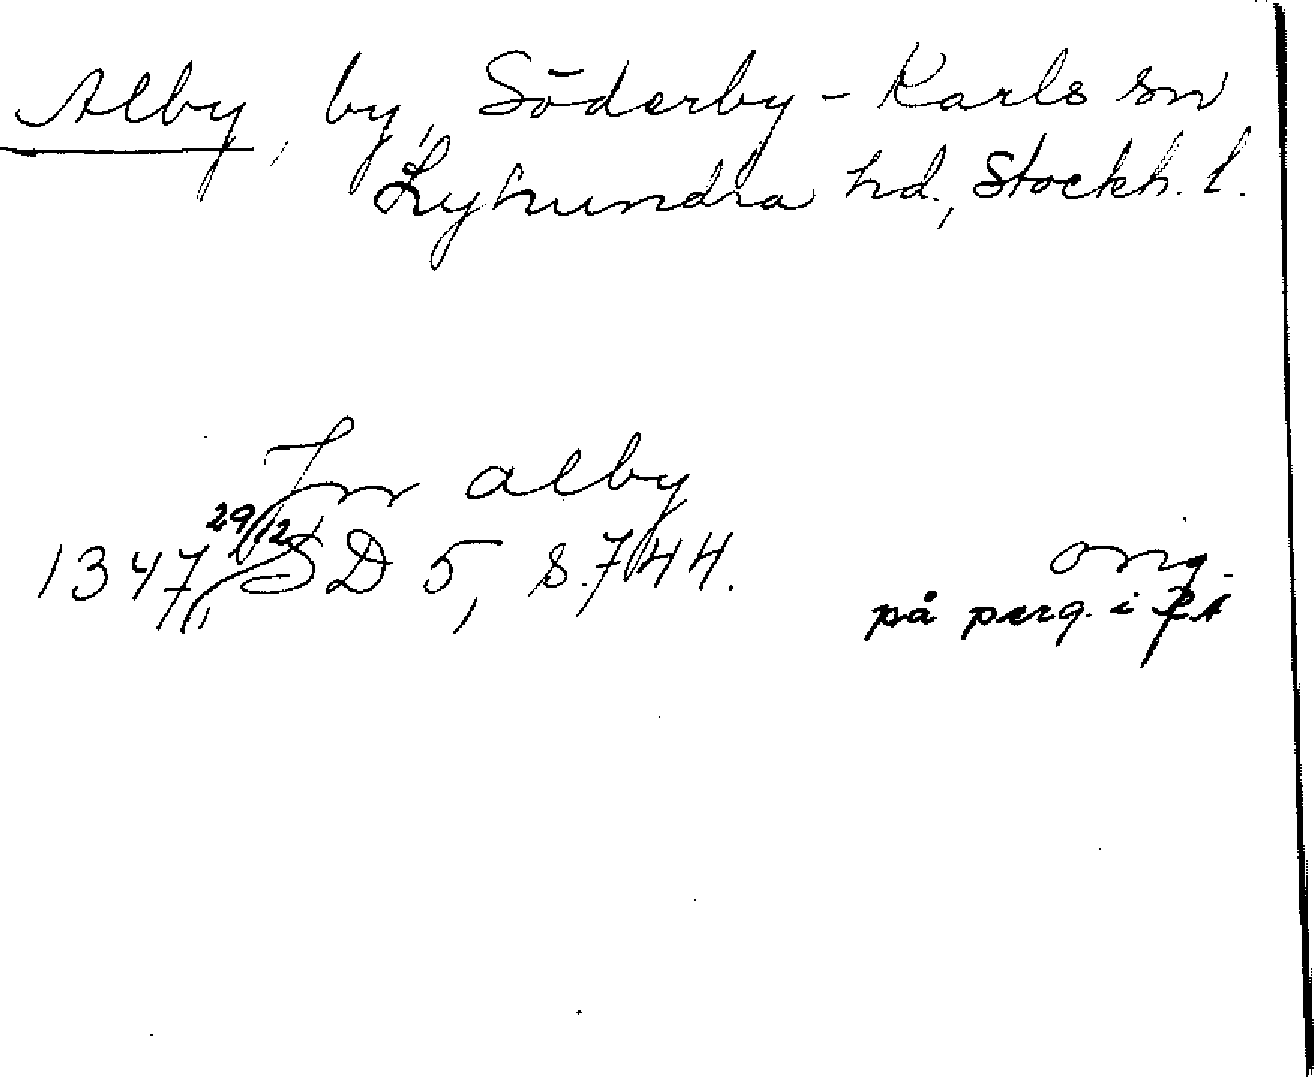 Alby, by, Söderby-Karls sn
Lyhundra hd., Stockh. l.
Jn alby
1347 29/12, SD 5, s. 744.
orig.
på perg. i RA